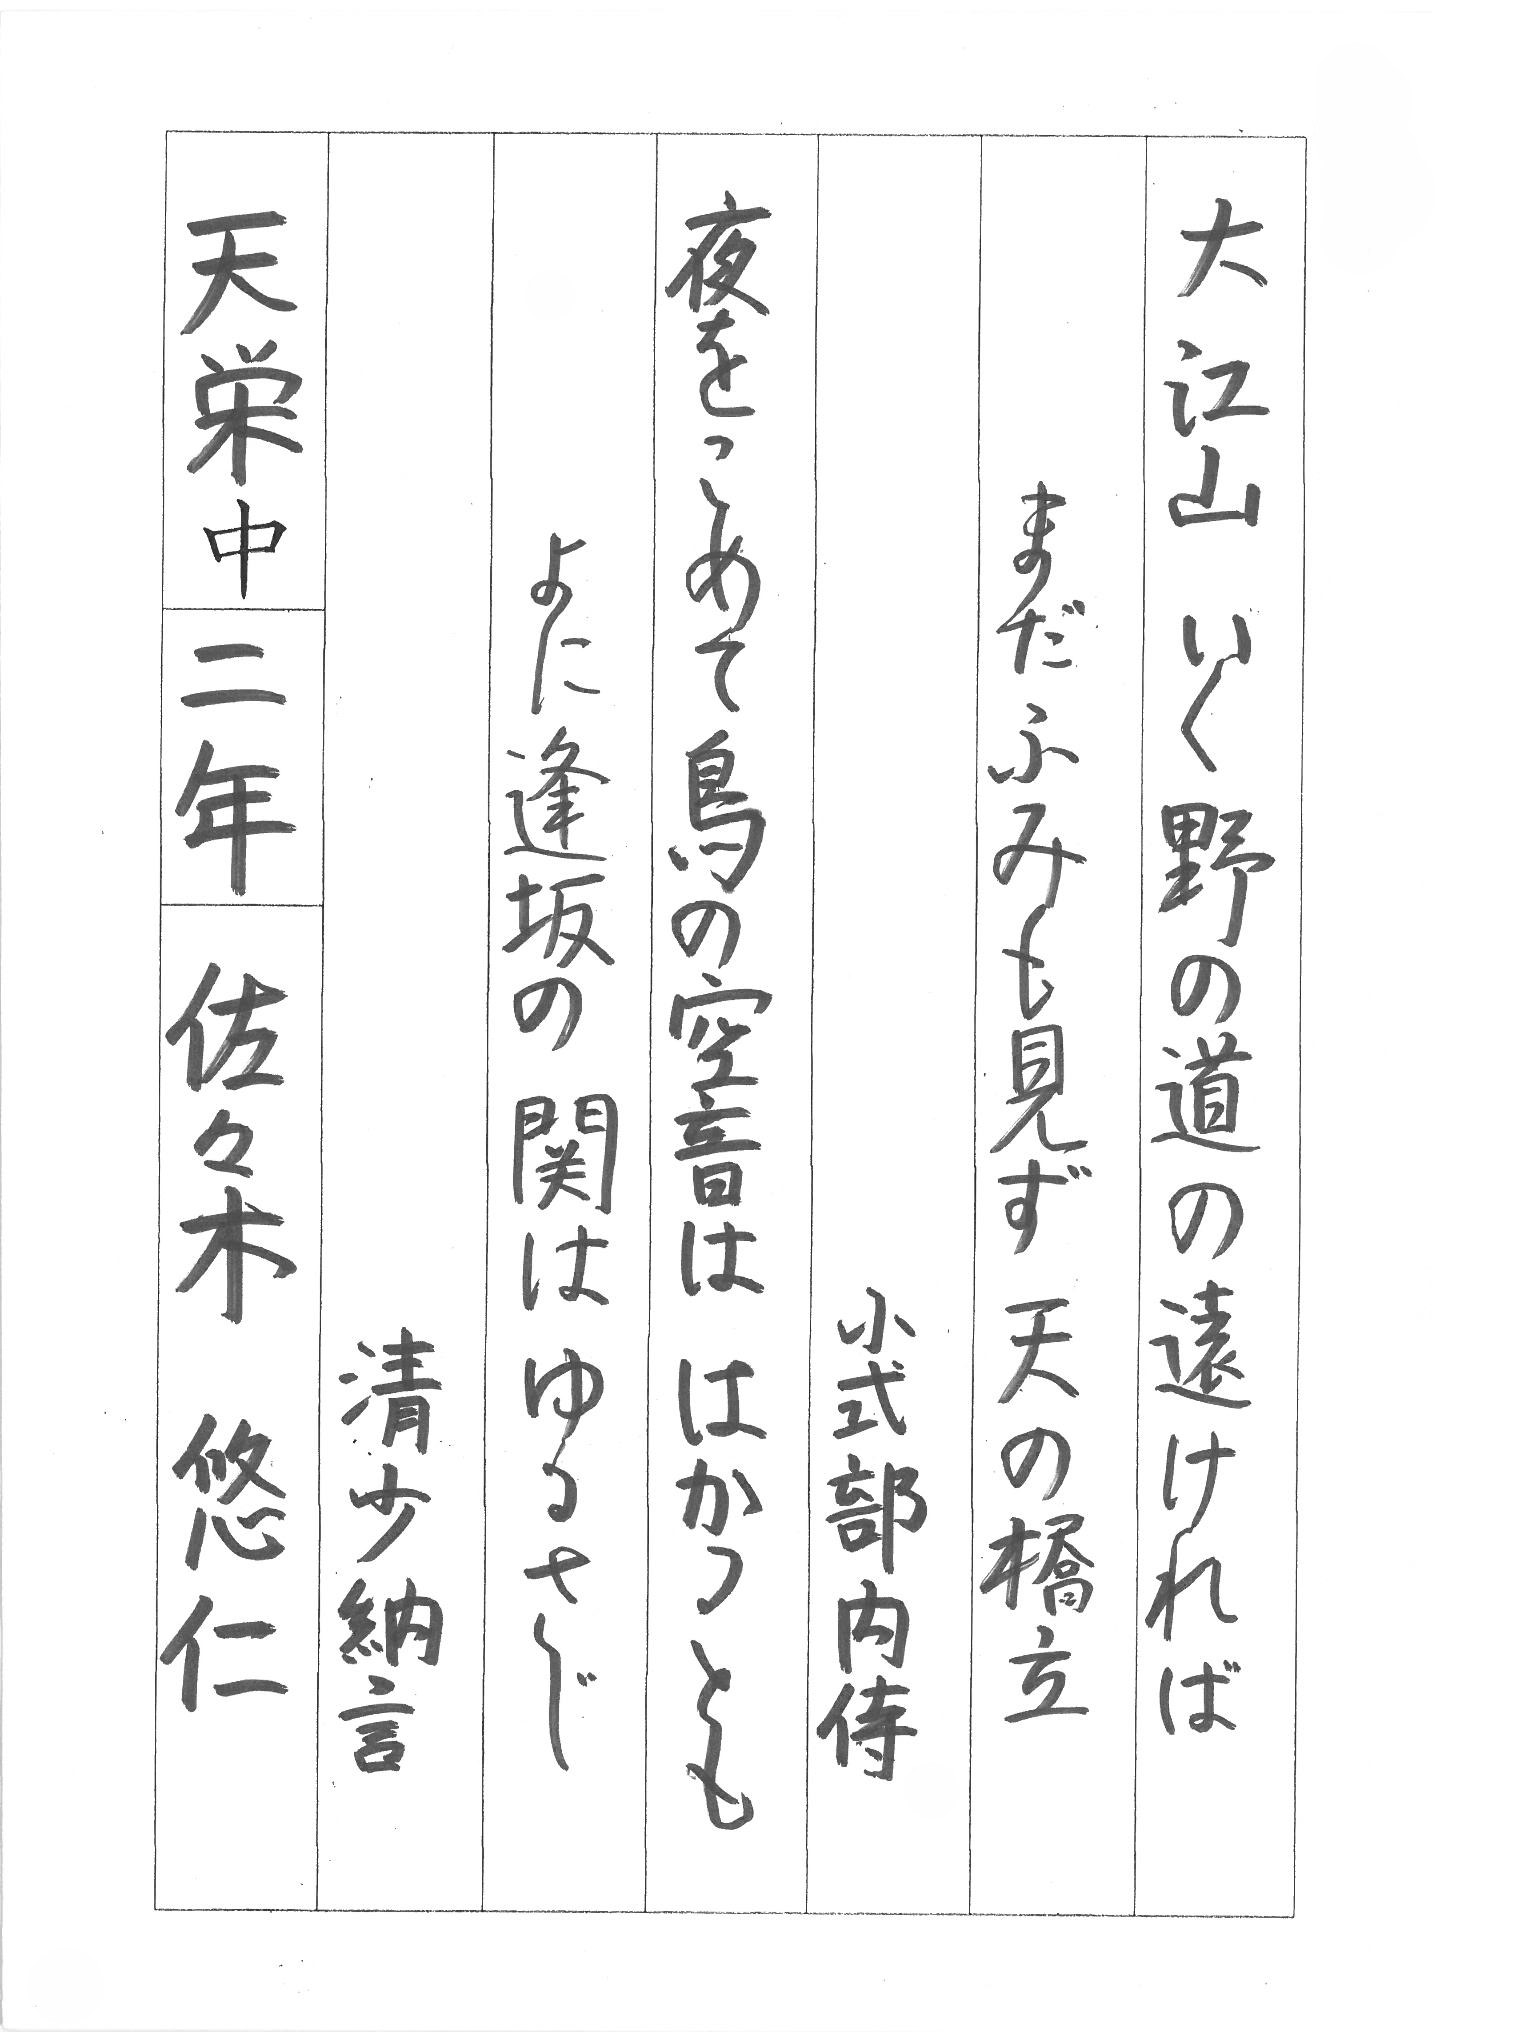 大江山いく野の道の遠ければ
まだふみも見ず天の橋立
小式部内侍
夜をこめて鳥の空音ははかるとも
よに逢坂の関はゆるさじ
清少納言
天栄中 二年 佐々木 悠仁